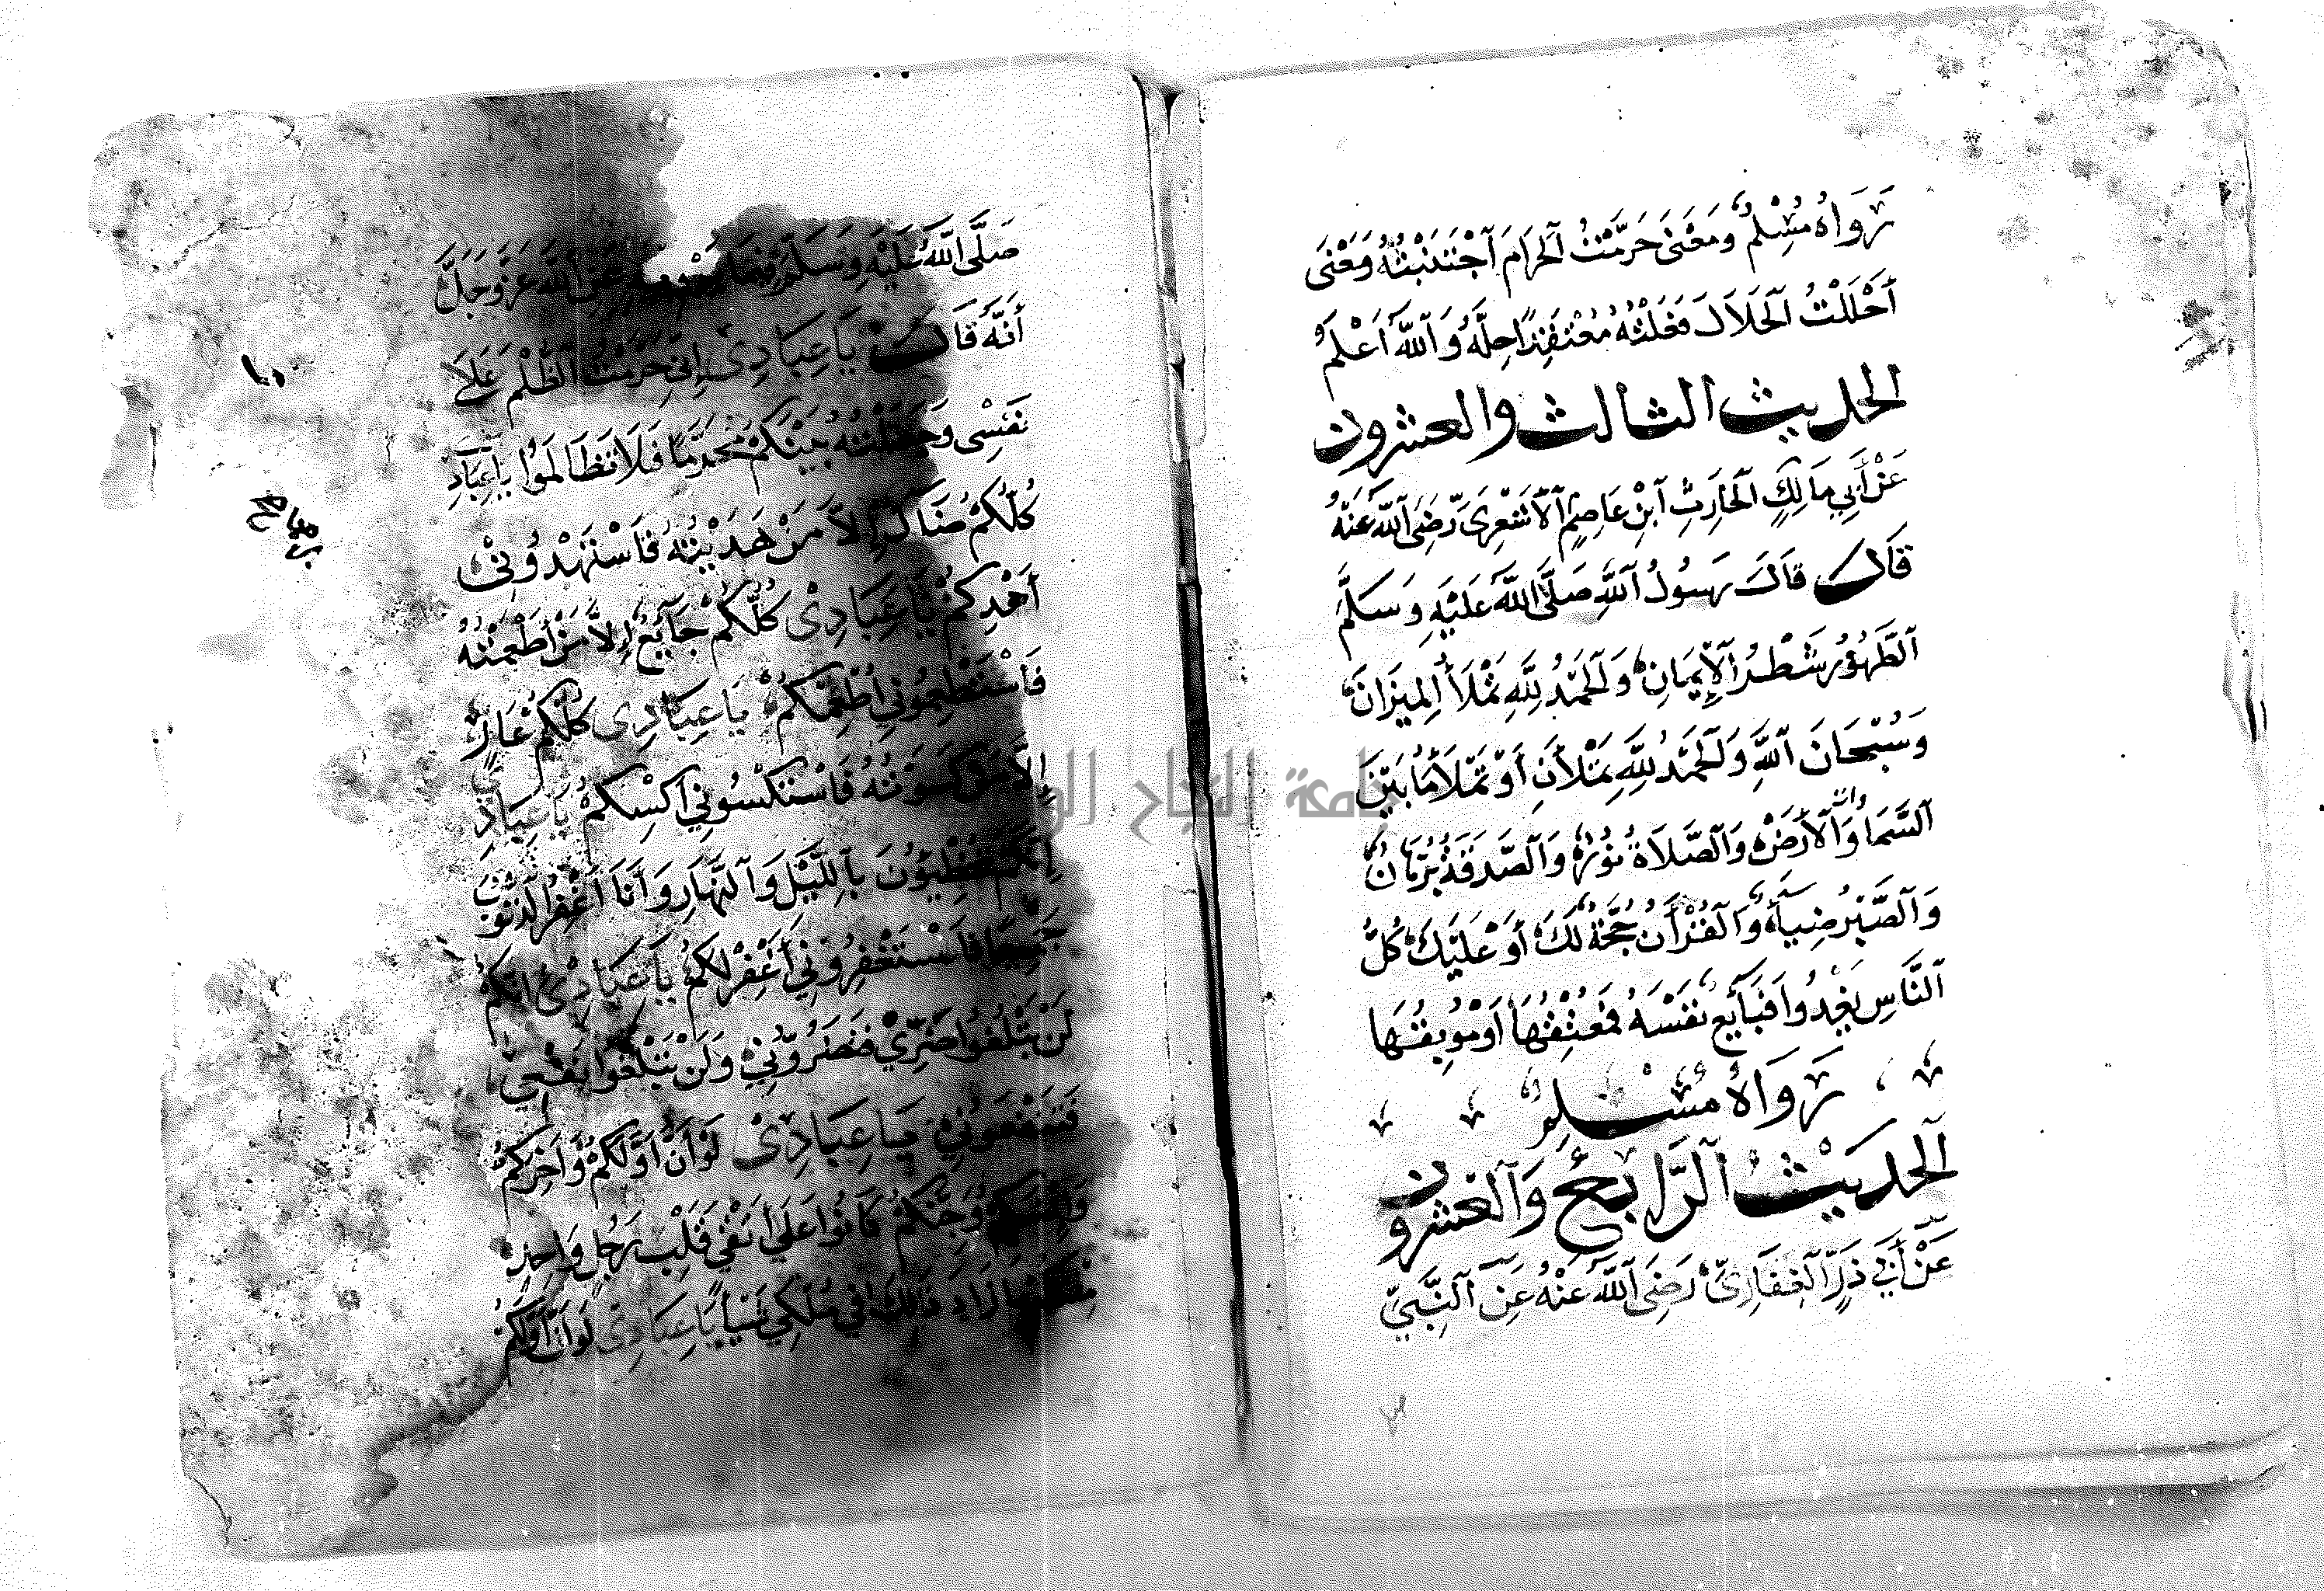 رَوَاهُ مُسْلِمٌ وَمَعْنَى حَرَّمْتُ ٱلْحَرَامَ ٱجْتَنَبْتُهُ وَمَعْنَى
أَحْلَلْتُ ٱلْحَلَالَ فَعَلْتُهُ مُعْتَقِدًا حِلَّهُ وَٱللَّهُ أَعْلَمُ
الحديث الثالث والعشرون
عَنْ أَبِي مَالِكٍ ٱلْحَارِثِ ٱبْنِ عَاصِمٍ ٱلْأَشْعَرِيِّ رَضِيَ ٱللَّهُ عَنْهُ
قَالَ قَالَ رَسُولُ ٱللَّهِ صَلَّى ٱللَّهُ عَلَيْهِ وَسَلَّمَ
ٱلطَّهُورُ شَطْرُ ٱلْإِيمَانِ وَٱلْحَمْدُ لِلَّهِ تَمْلَأُ ٱلْمِيزَانَ
وَسُبْحَانَ ٱللَّهِ وَٱلْحَمْدُ لِلَّهِ تَمْلَأَنِ أَوْ تَمْلَأُ مَا بَيْنَ
ٱلسَّمَا وَٱلْأَرْضِ وَٱلصَّلَاةُ نُورٌ وَٱلصَّدَقَةُ بُرْهَانٌ
وَٱلصَّبْرُ ضِيَآءٌ وَٱلْقُرْأَنُ حُجَّةٌ لَكَ أَوْ عَلَيْكَ كُلُّ
ٱلنَّاسِ يَغْدُوا فَبَآئِعٌ نَفْسَهُ فَمُعْتِقُهَا أَوْ مُوبِقُهَا
رَوَاهُ مُسْلِمٌ
ٱلْحَدِيْثُ ٱلرَّابِعُ وَٱلْعِشْرُونَ
عَنْ أَبِي ذَرٍّ ٱلْغِفَارِيِّ رَضِيَ ٱللَّهُ عَنْهُ عَنِ ٱلنَّبِيِّ
صَلَّى ٱللَّهُ عَلَيْهِ وَسَلَّمَ فِيمَا يَرْوِيهِ عَنِ ٱللَّهِ عَزَّ وَجَلَّ
أَنَّهُ قَالَ يَا عِبَادِي إِنِّي حَرَّمْتُ ٱلظُّلْمَ عَلَى
نَفْسِي وَجَعَلْتُهُ بَيْنَكُمْ مُحَرَّمًا فَلَا تَظَالَمُوا يَا عِبَادِ
كُلُّكُمْ ضَآلٌّ إِلَّا مَنْ هَدَيْتُهُ فَاسْتَهْدُونِيْ
أَهْدِكُمْ يَا عِبَادِيْ كُلُّكُمْ جَآئِعٌ إِلَّا مَنْ أَطْعَمْتُهُ
فَاسْتَطْعِمُونِي أُطْعِمْكُمْ يَا عِبَادِي كُلُّكُمْ عَارٍ
إِلَّا مَنْ كَسَوْتُهُ فَاسْتَكْسُونِي أَكْسِكُمْ يَا عِبَادِ
إِنَّكُمْ تُخْطِئُونَ بِٱللَّيْلِ وَٱلنَّهَارِ وَأَنَا أَغْفِرُ ٱلذُّنُوبَ
جَمِيعًا فَاسْتَغْفِرُونِي أَغْفِرْ لَكُمْ يَا عِبَادِيْ إِنَّكُمْ
لَنْ تَبْلُغُوا ضُرِّيْ فَتَضُرُّونِيْ وَلَنْ تَبْلُغُوا نَفْعِي
فَتَنْفَعُونِيْ يَا عِبَادِيْ لَوْ أَنَّ أَوَّلَكُمْ وَأَخِرَكُمْ
وَإِنْسَكُمْ وَجِنَّكُمْ كَانُوا عَلَى أَتْقَى قَلْبِ رَجُلٍ وَاحِدٍ
مِنْكُمْ مَا زَادَ ذَلِكَ فِي مُلْكِي شَيْأً يَا عِبَادِي لَوْ أَنَّ أَوَّلَكُمْ
جامعة النجاح